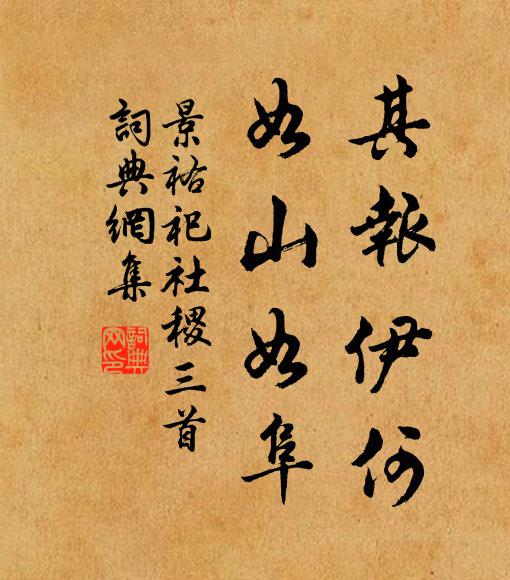 其報伊何
如山如阜
景祐祀社稷三首
詞典網集
詞典網印